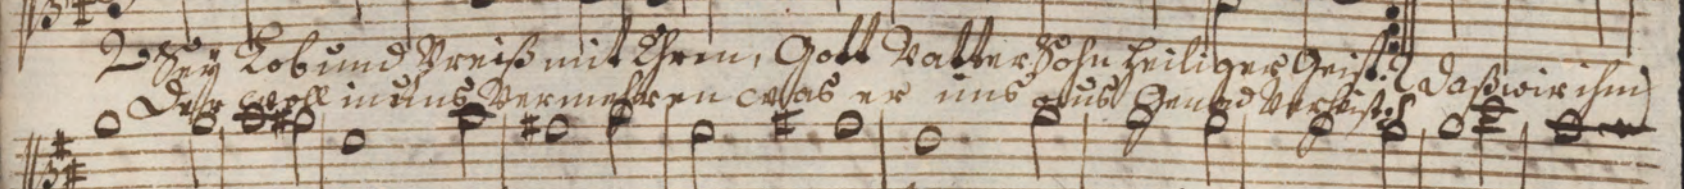 2 Sey Lob und Preiß mit Ehren, Gott Vatter Sohn heiliger Geist. daß wir ihm
Der woll in uns vermehren was er uns aus Genad verheist.